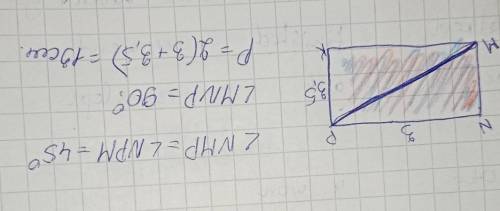 N 3 P
3,5
M K
∠NMP = ∠NPM = 45°
∠MNP = 90°.
P = 2(3+3,5) = 13 см.